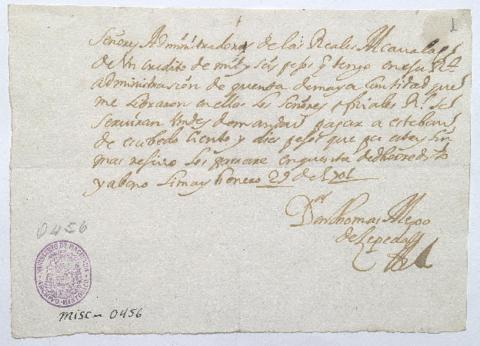 1
Señores Administradores de las Reales Alcavalas
de Un credito de mill y seis pesos q tengo en esa Rl
administrasion de quenta de mayor Cantidad que
me libraron en ellas los señores ofiziales Rs Se
serviran Vmdes de mandar pagar a esteban
de escobedo Ciento y dies pesos que con este sin
mas resivo los pasare en quenta de dho credito
y abono Lima y henero 29 de 1701
Dn Thomas Alejo
de Zepeda
0456
MINISTERIO DE HACIENDA
misc - 0456